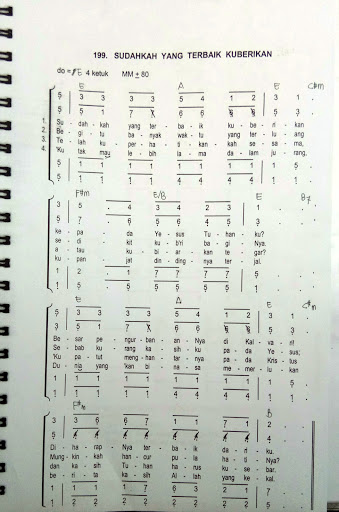 199. SUDAHKAH YANG TERBAIK KUBERIKAN
do = E 4 ketuk MM ± 80
E A E C#m
5 3 3 3 3 5 4 1 2 3 1 .
1. Su - dah - kah yang ter - ba - ik ku - be - ri - kan
2. Be - gi - tu ba - nyak wak - tu yang ter - lu - ang
3. Te - lah ku - per - ha - ti - kan - kah se - sa - ma,
4. 'Ku tak mau le - bih la - ma da - lam ju - rang,
5 1 1 1 1 1 1 4 4 1 5 .
F#m E/B E B7
3 5 4 3 4 2 3 1 .
ke - pa - da Ye - sus Tu - han - ku?
se - di - kit ku - b'ri ba - gi - Nya.
a - tau ku - bi - ar - kan te - gar?
ku - pan - jat din - ding - nya ter - jal.
1 2 . 1 7 7 7 7 5 .
E A E C#m
Be - sar pe - ngur - ban - an - Nya di Kal - va - ri!
Se - bab ku - rang ka - sih - ku pa - da Ye - sus;
'Ku pa - tut meng - han - tar - nya pa - da Kris - tus
Du - nia yang 'kan bi - na - sa me - mer - lu - kan
F#m B
3 3 6 6 7 1 1 7 1 2 .
Di - ha - rap - Nya ter - ba - ik da - ri - ku.
Mung - kin - kah han - cur pu - la ha - ti - Nya?
dan ka - sih Tu - han ha - rus ku - se - bar.
be - ri - ta ka - sih Al - lah yang ke - kal.